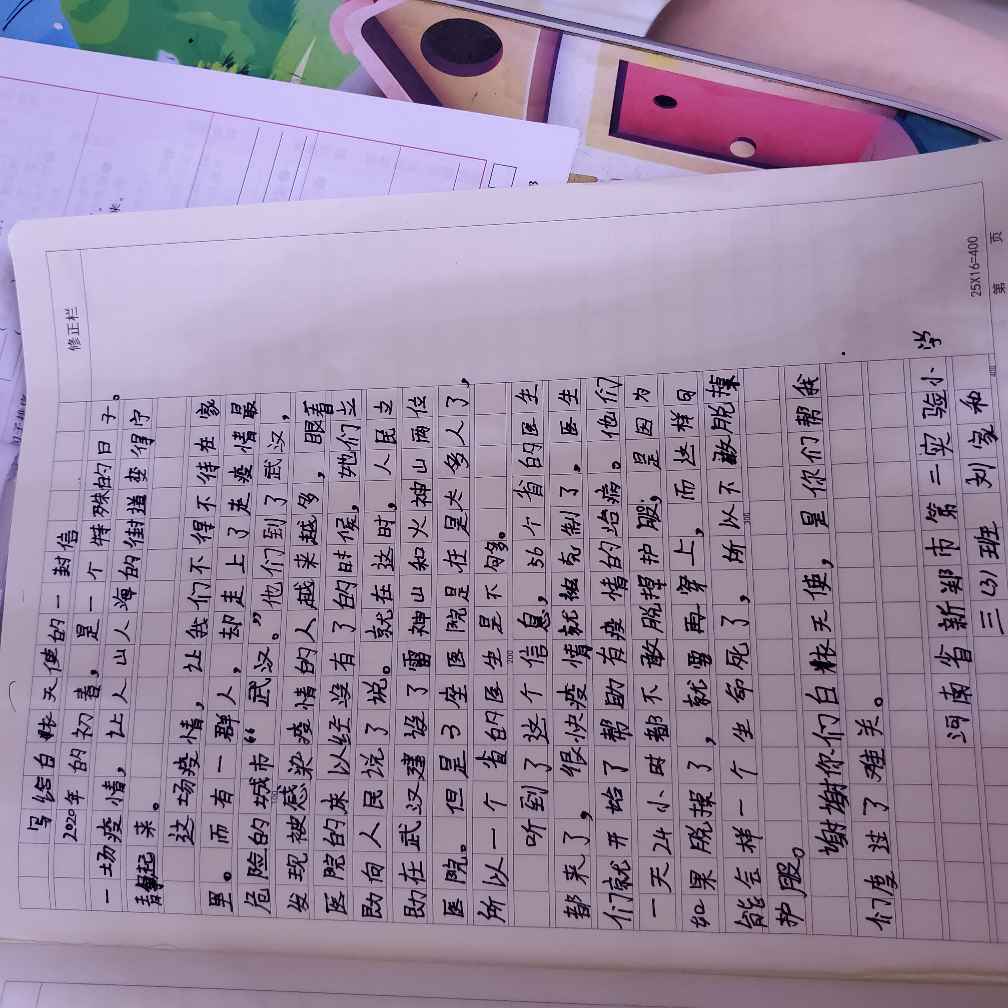 修正栏
写给白衣天使的一封信
2020年的初春，是一个特殊的日子。
一场疫情，让人山人海的街道变得宁
静起来。
这场疫情，让我们不得不待在家
里。而有一群人，却走上了走疫情最
危险的城市“武汉。”他们到了武汉，
发现被感染疫情的人越来越多，眼看
医院的床以经没有了的时候，她们立
即向人民说了说。就在这时，人民立
即在武汉建设了雷神山和火神山两位
医院。但是3座医院是在是太多人了，
所以一个省的医生是不够。
听到了这个信息，56个省的医生
都来了，很快疫情就被克制了。医生
们就开始了帮助有疫情的治病。他们
一天24小时都不敢脱掉护服，是因为
如果脱掉了，就要再穿上，而这样可
能会样一个生命死了，所以不敢脱掉
护服。
谢谢你们白衣天使，是你们帮我
们度过了难关。
河南省新郑市第二实验小学
三（3）班 刘家和
100
200
300
400
25X16=400
第 页